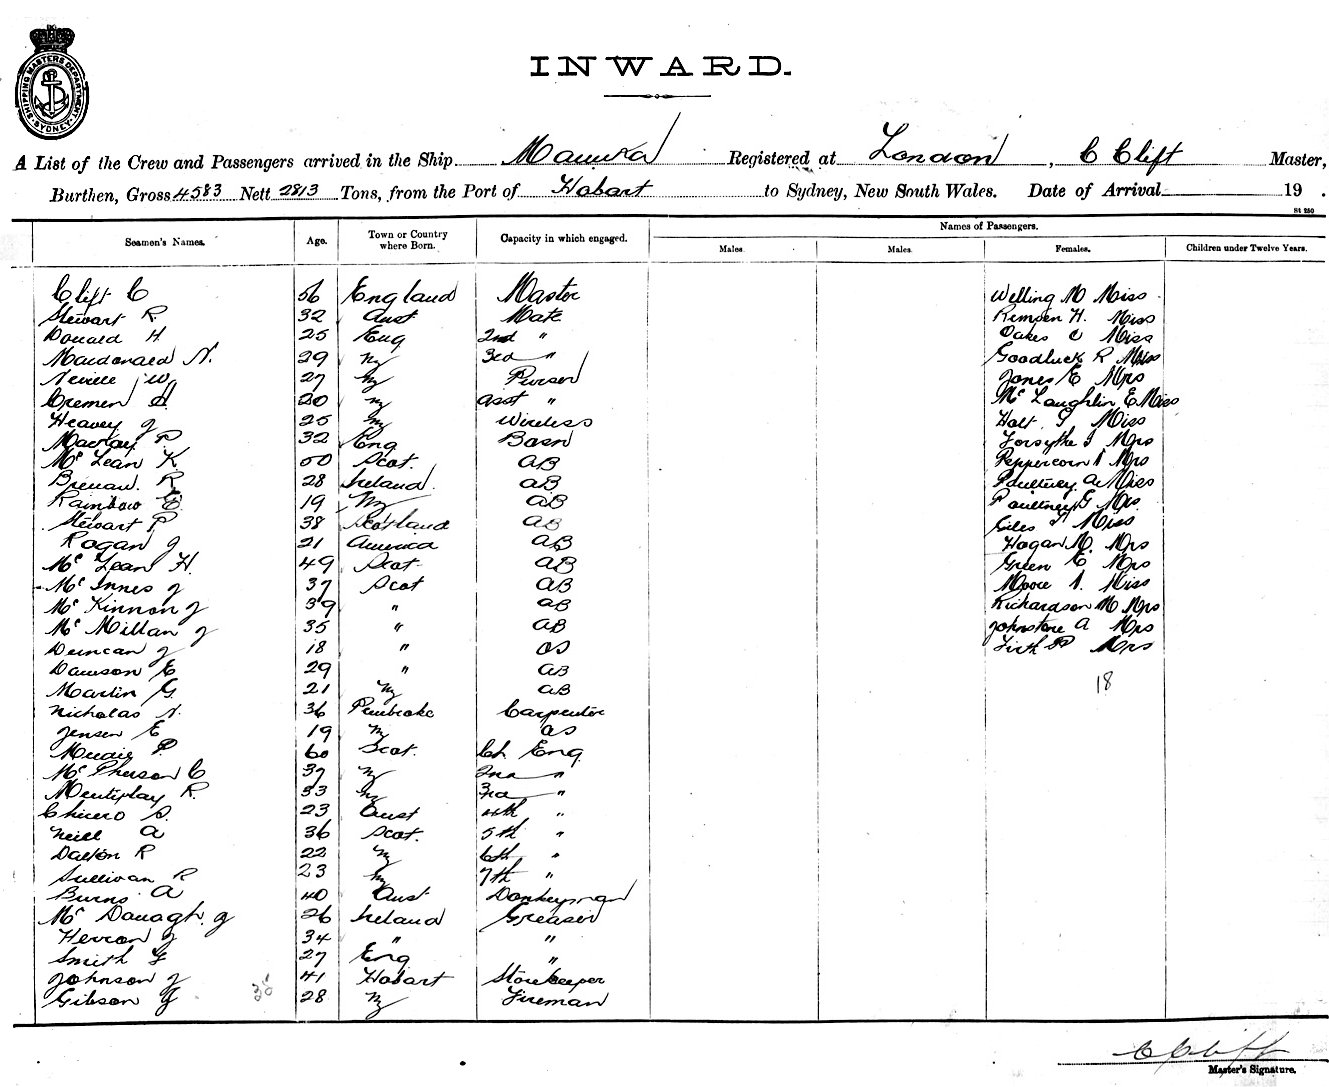 SHIPPING MASTERS DEPARTMENT
SYDNEY
INWARD.
A List of the Crew and Passengers arrived in the Ship Manuka Registered at London, C Clift Master,
Burthen, Gross 4583 Nett 2813 Tons, from the Port of Hobart to Sydney, New South Wales. Date of Arrival 19 .
St 250
Seamen's Names. Age. Town or Country where Born. Capacity in which engaged. Names of Passengers.
Males. Males. Females. Children under Twelve Years.
Clift C 56 England Master Welling M Miss
Stewart R 32 Aust Mate Rempen H. Miss
Donald H 25 Eng 2nd " Oakes C Miss
Macdonald N. 29 NZ 3rd " Goodluck R Miss
Neville W 27 NZ Purser Jones E Mrs
Cremen H 20 NZ asst " Mc Laughlin E Miss
Heavey J 25 NZ Wireless Holt Miss
Macray P. 32 Eng Bosn Forsythe J Mrs
Mc Lean K 50 Scot. AB Peppercorn Mrs
Brenan. R 28 Ireland. AB Poultney. A Miss
Rainbow E 19 NZ AB Poultney G Mrs.
Stewart P 38 Scotland AB Giles Miss
Rogan J 21 America AB Hogan M. Mrs
Mc Lean H. 49 Scot. AB Green E Mrs
Mc Innes J 37 Scot AB Moore Miss
Mc Kinnon J 39 " AB Richardson M Mrs
Mc Millan J 35 " AB Johnstone A Mrs
Duncan J 18 " OS Firth P Mrs
Dawson E 29 " AB
Martin G 21 NZ AB 18
Nicholas N. 36 Pembroke Carpenter
Jensen E 19 NZ OS
Mudie P. 60 Scot. Ch Eng
Mc Pherson C 37 NZ 2nd "
Mentiplay R. 33 NZ 3rd "
Chicero S. 23 Aust 4th "
Neill A 36 Scot. 5th "
Dalton R 22 NZ 6th "
Sullivan R 23 NZ 7th "
Burns A 40 Aust Donkeyman
Mc Donagh. J 26 Ireland Greaser
Herron J 34 " "
Smith F 27 Eng "
Johnson J 41 Hobart Storekeeper
Gibson G 28 NZ Fireman
35
C Clift
Master's Signature.